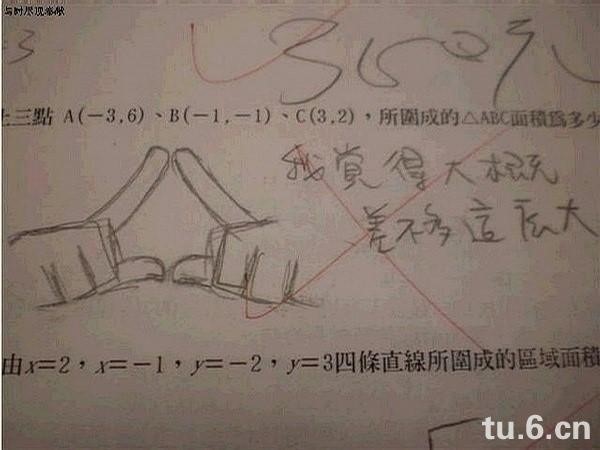 -3
360元
上三點 A(-3,6)、B(-1,-1)、C(3,2)，所圍成的△ABC面積為多少
我覺得大概
差不多這么大
由x=2，x=-1，y=-2，y=3四條直線所圍成的區域面積
tu.6.cn